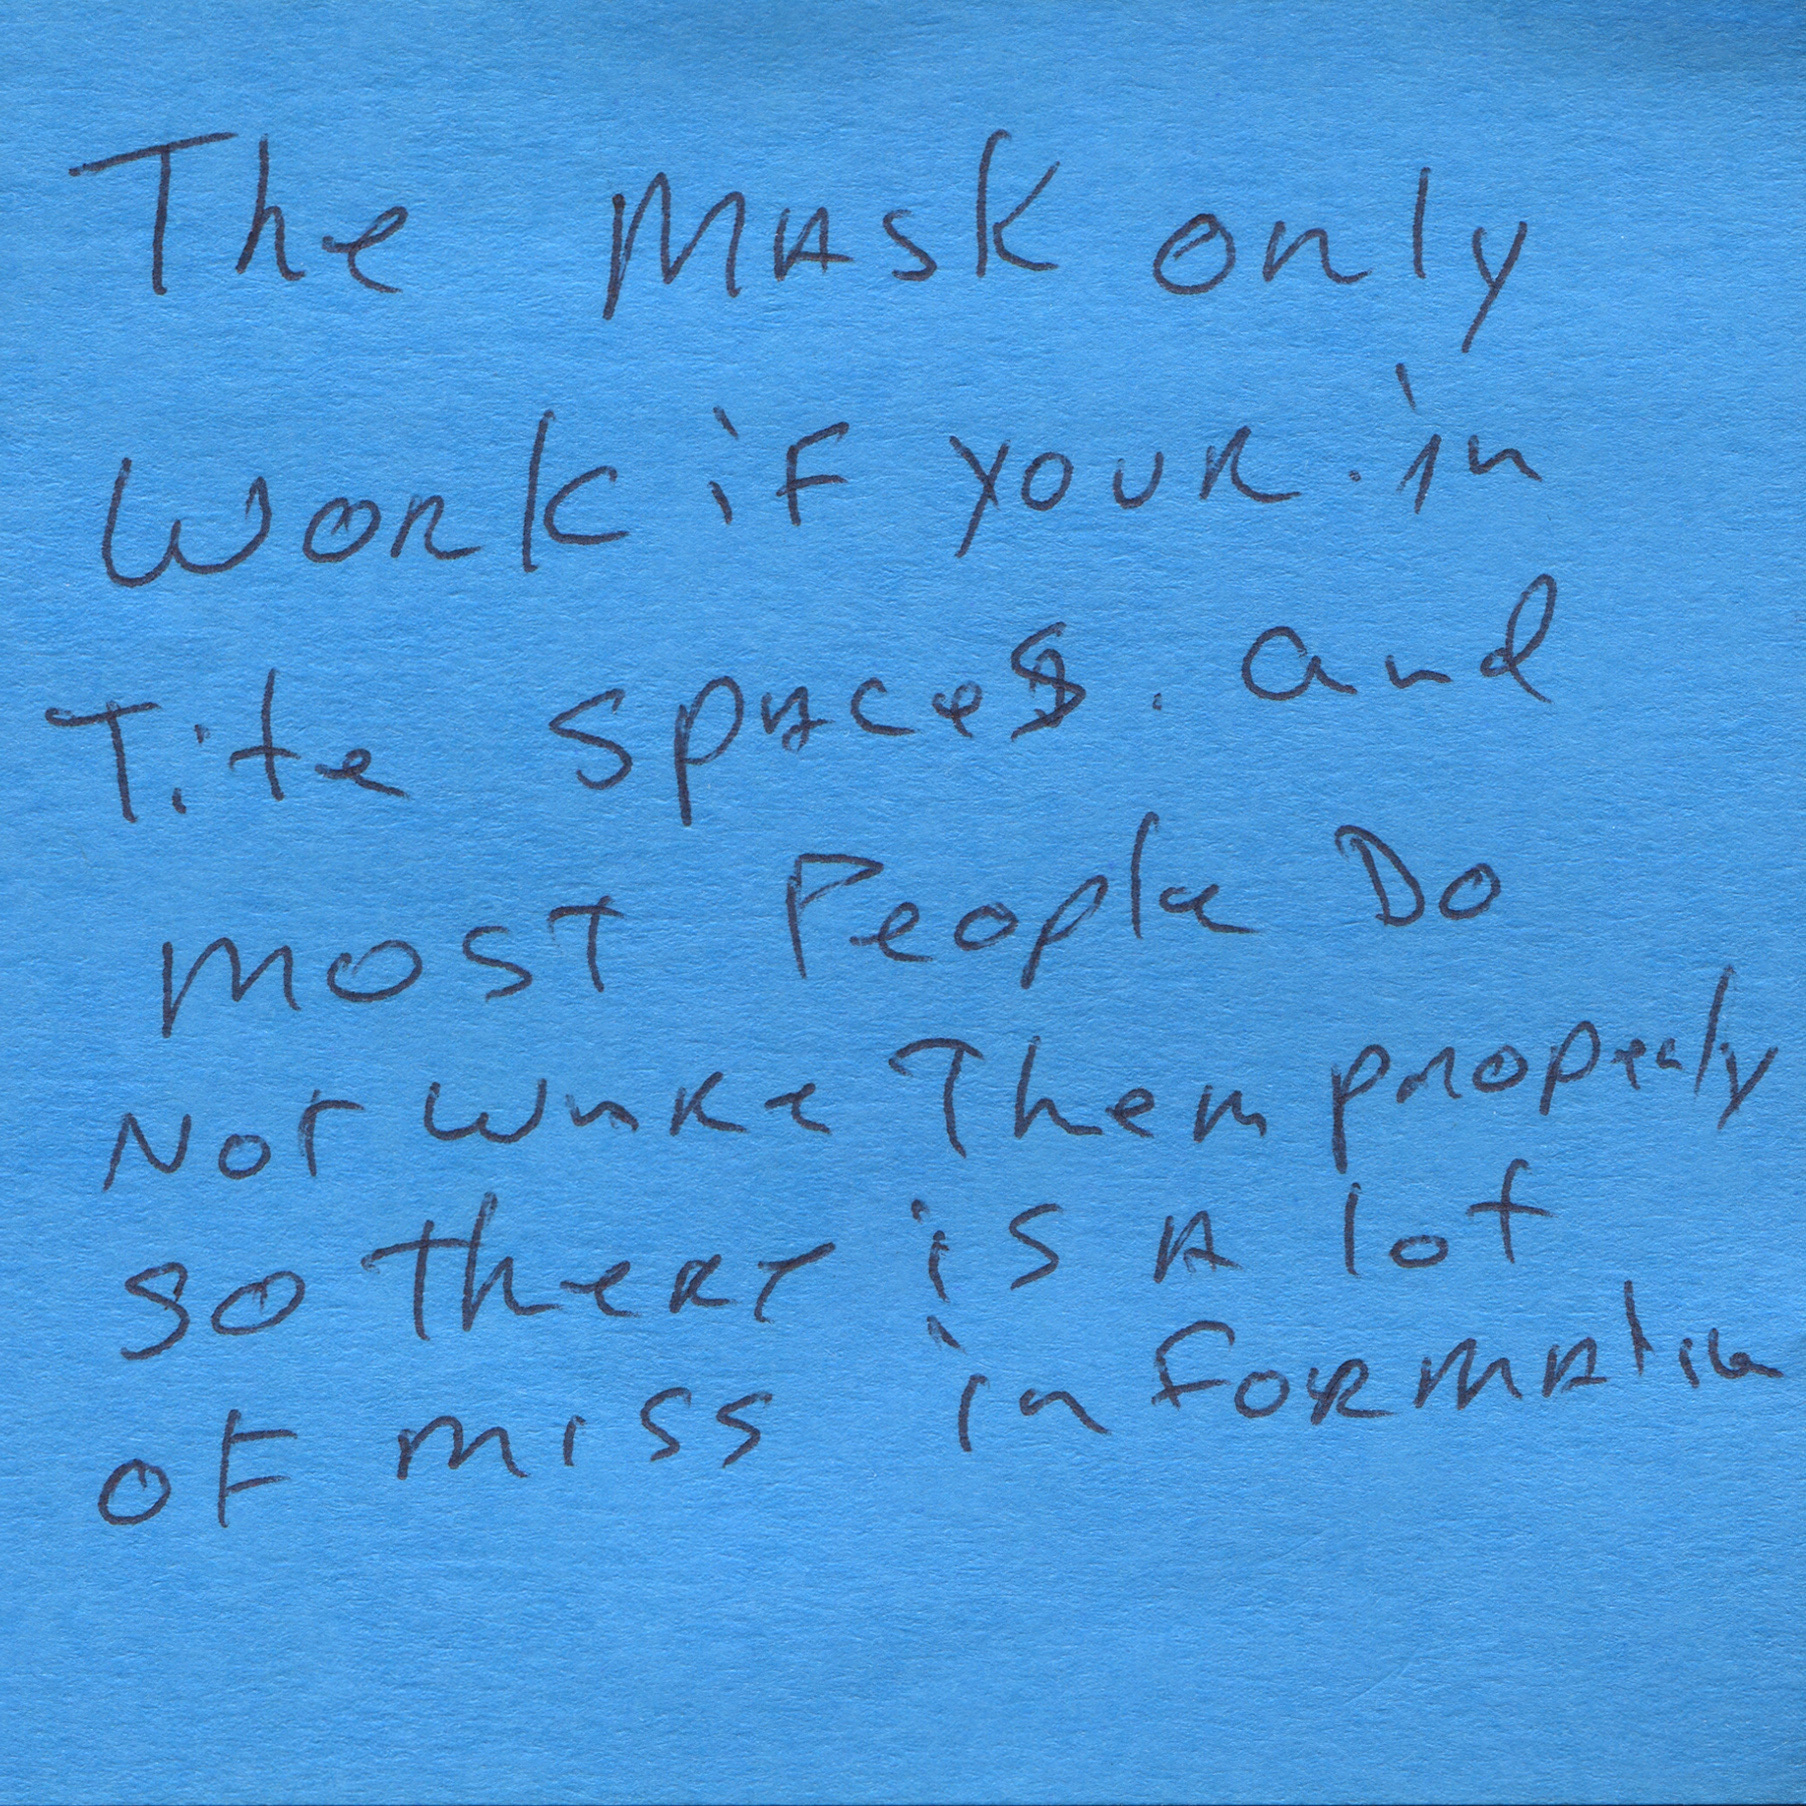 The Mask only
Work if your in
Tite spaces. and
most People Do
Not Ware Them properly
so there is A lot
of miss information